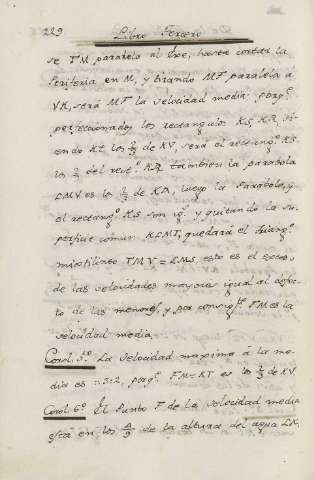 229 Libro Tercero
se TM paralela al Exe, hasta cortar la
Periferia en M, y tirando MF paralela á
VK, será MF la velocidad media porq.ᵉ
perfeccionados los rectangulos KS, KR, si-
endo KT los ⅔ de KV, será el rectang.º KS
los ⅔ del rect.º KR tambien la parabola
LMV es los ⅔ de KR, luego la Parabola, y
el rectang.º KS son ig.ˢ y quitando la su-
perficie comun KLMT, quedará el triang.º
mixtilineo TMV = LMS, esto es el exceso
de las velocidades mayores igual al defec-
to de las menores, y por consig.ᵗᵉ FM es la
velocidad media.
Corol. 5.º La velocidad maxima á la me-
dia es = 3:2, porq.ᵉ FM = KT es los ⅔ de KV
Corol. 6.º El Punto F de la velocidad media
está en los de la altura del agua LK,